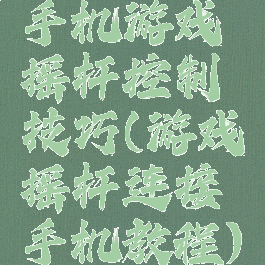 手机游戏
操杆控制
技巧(游戏
操杆连接
手机教程)